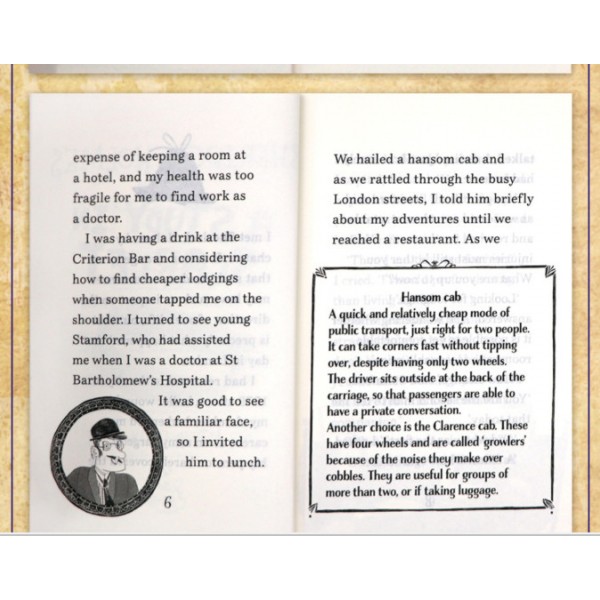 expense of keeping a room at
a hotel, and my health was too
fragile for me to find work as
a doctor.
I was having a drink at the
Criterion Bar and considering
how to find cheaper lodgings
when someone tapped me on the
shoulder. I turned to see young
Stamford, who had assisted
me when I was a doctor at St
Bartholomew's Hospital.
It was good to see
a familiar face,
so I invited
him to lunch.
6
We hailed a hansom cab and
as we rattled through the busy
London streets, I told him briefly
about my adventures until we
reached a restaurant. As we
Hansom cab
A quick and relatively cheap mode of
public transport, just right for two people.
It can take corners fast without tipping
over, despite having only two wheels.
The driver sits outside at the back of the
carriage, so that passengers are able to
have a private conversation.
Another choice is the Clarence cab. These
have four wheels and are called 'growlers'
because of the noise they make over
cobbles. They are useful for groups of
more than two, or if taking luggage.